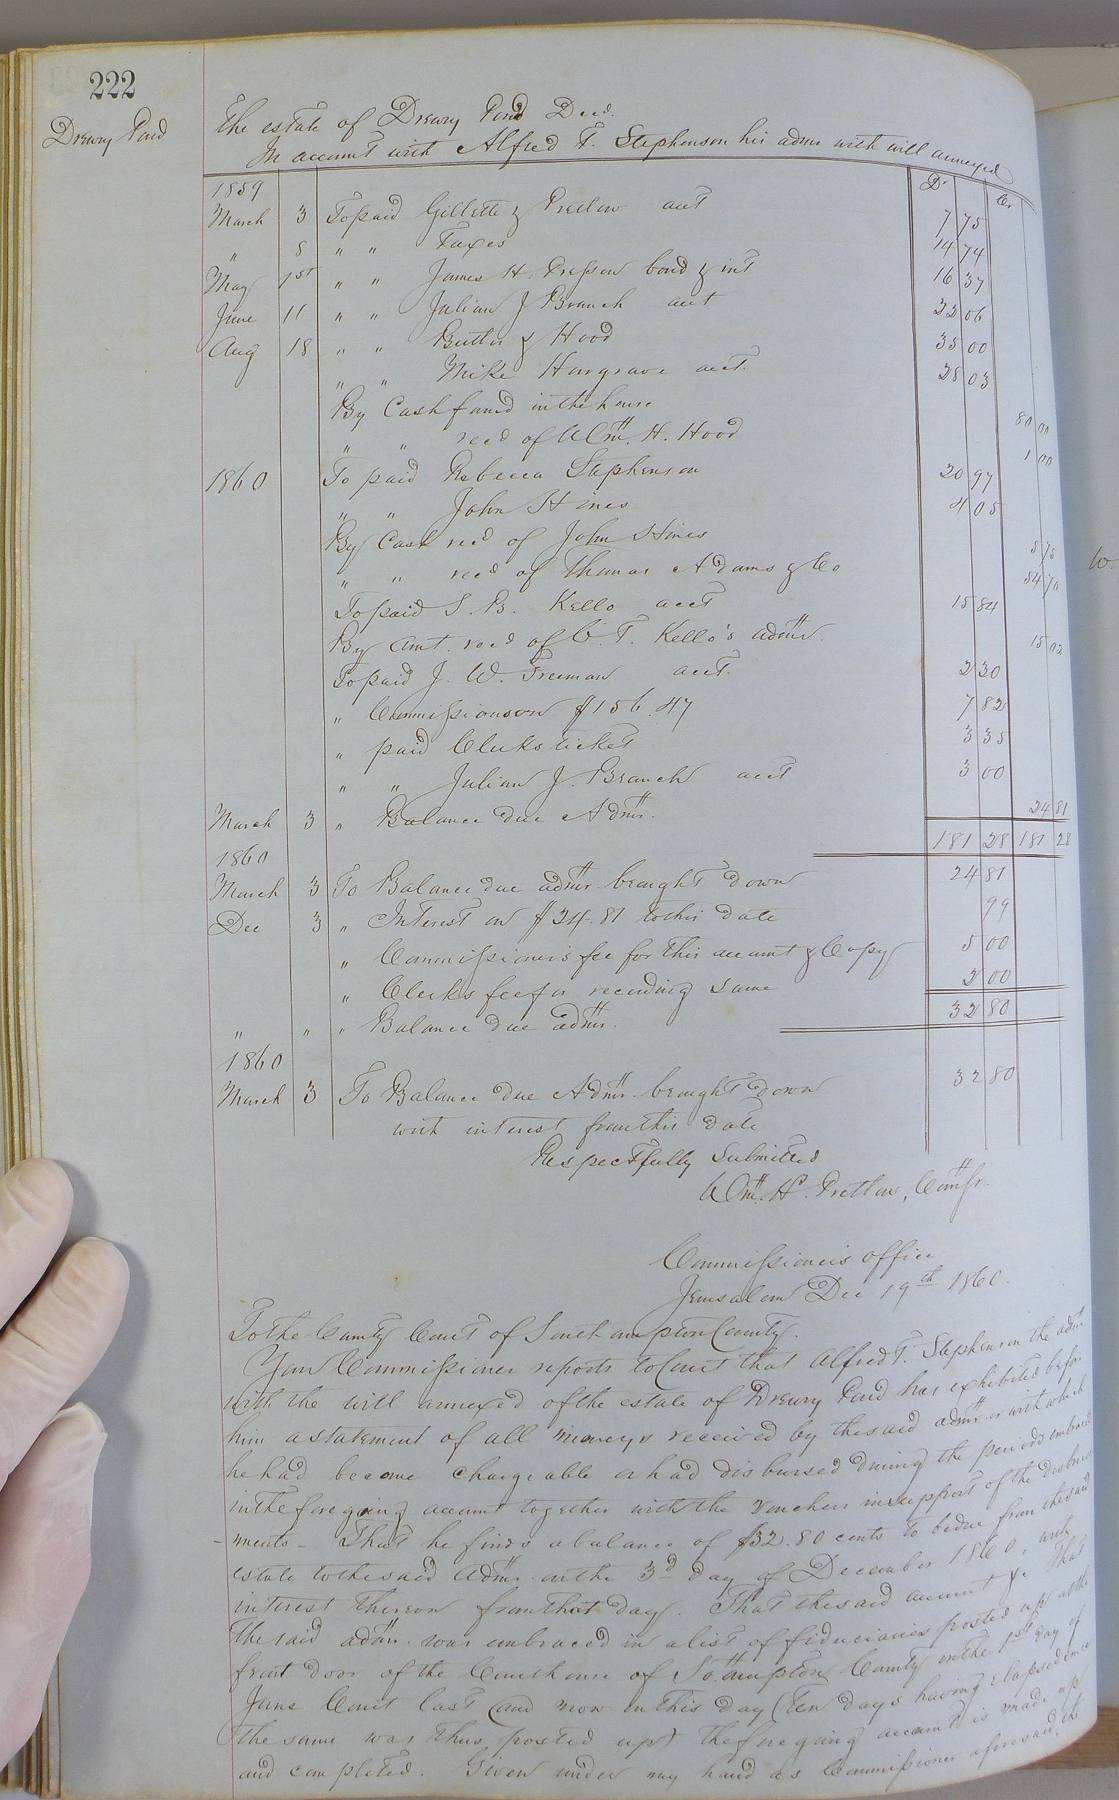 222
Drewry Pond
The estate of Drewry Pond Decd.
In account with Alfred T. Stephenson his admr with will annexed
1859 Dr Cr
March 3 To paid Gillette & Pretlow acct 7 75
" 8 " " Taxes 14 74
May 1st " " James H. Presson bond & int 16 37
June 11 " " Julian J Branch acct 22 06
Aug 18 " " Butts & Hood 35 00
" " Mike Hargrave acct. 28 03
By Cash found in the house 80 00
" " recd of Wm. H. Hood 1 00
1860 To paid Rebecca Stephenson 20 97
" " John Hines 4 05
By Cash recd of John Hines 5 75
" " recd of Thomas Adams & Co 54 70
To paid S. B. Kello acct 15 84
By Amt. recd of T. Kello's admr. 15 02
To paid J. W. Freeman acct. 2 30
" Commission on $156.47 7 82
" paid Clerks ticket 3 35
" " Julian J. Branch acct 3 00
March 3 " Balance due Admr. 24 81
181 28 181 28
1860
March 3 To Balance due admr. brought down 24 81
Dec 3 " Interest on $24.81 to this date 99
" Commissioner's fee for this account & Copy 5 00
" Clerks fee for recording same 2 00
" " " Balance due admr. 32 80
1860
March 3 To Balance due Admr. brought down 32 80
with interest from this date
Respectfully Submitted
Wm. H. Pretlow, Commr.
Commissioner's office
Jerusalem Dec 19th 1860.
To the County Court of Southampton County.
Your Commissioner reports to Court that Alfred T. Stephenson the admr
with the will annexed of the estate of Drewry Pond has exhibited before
him a statement of all moneys received by the said admr or with which
he had become chargeable or had disbursed during the periods embraced
in the foregoing account together with the vouchers in support of the disburse
-ments - That he finds a balance of $32.80 cents to be due from the said
estate to the said Admr. on the 3d day of December 1860, with
interest thereon from that day. That the said account &c. That
the said admr. was embraced in a list of fiduciaries posted up at the
front door of the Courthouse of So.ampton County on the 1st day of
June Court last (and now on this day (ten days having elapsed since
the same was thus posted up) the foregoing account is made up
and completed. Given under my hand as Commissioner aforesaid, the